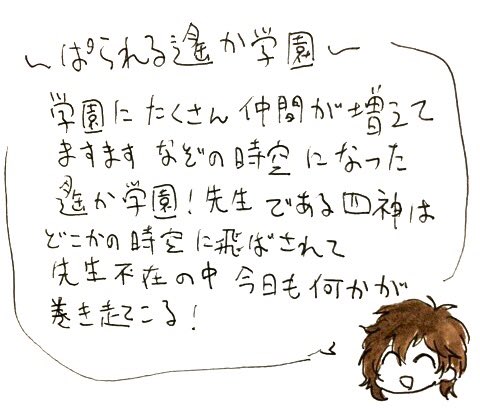 ～ぱられる遙か学園～
学園にたくさん仲間が増えて
ますますなぞの時空になった
遙か学園！先生である四神は
どこかの時空に飛ばされて
先生不在の中今日も何かが
巻き起こる！